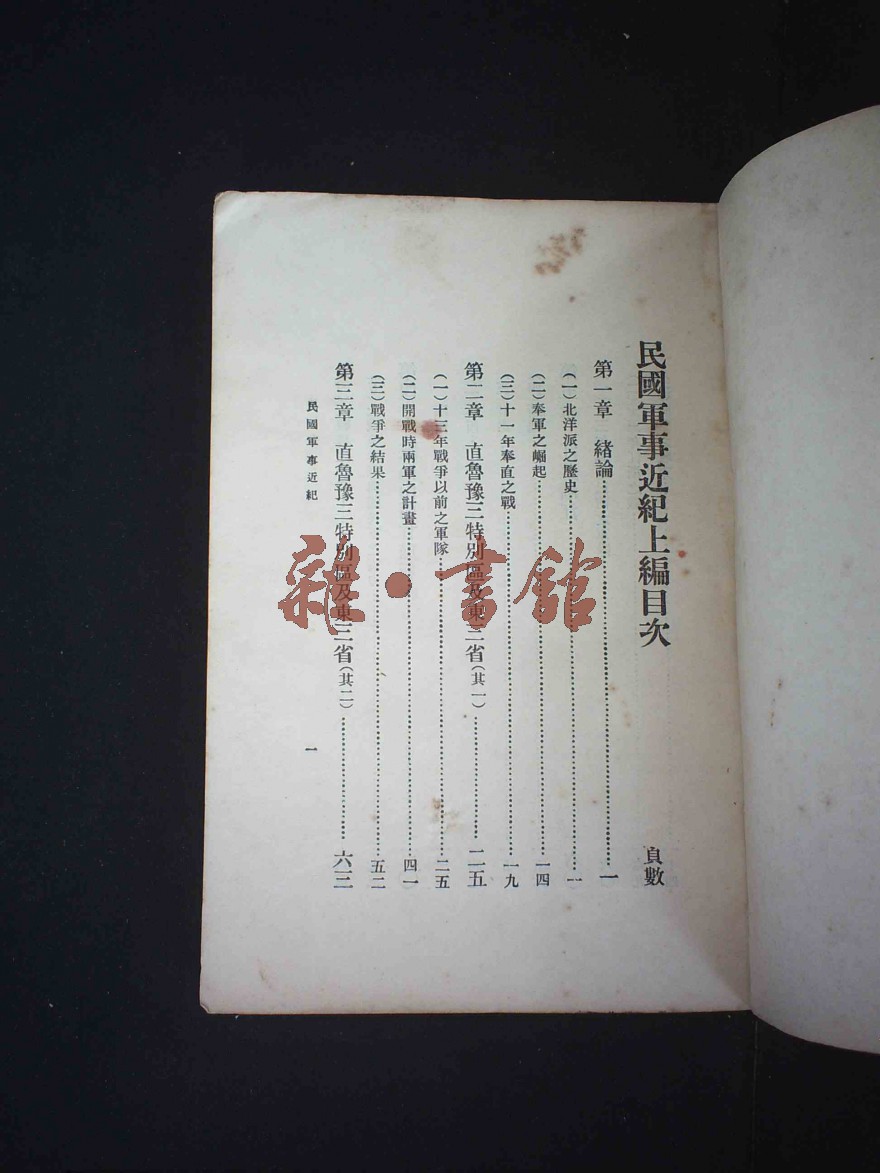 民國軍事近紀上編目次
頁數
第一章 緒論……一
(一)北洋派之歷史……一
(二)奉軍之崛起……一四
(三)十一年奉直之戰……一九
第二章 直魯豫三特別區及東三省(其一)……二五
(一)十三年戰爭以前之軍隊……二五
(二)開戰時兩軍之計畫……四一
(三)戰爭之結果……五二
第三章 直魯豫三特別區及東三省(其二)……六三
民國軍事近紀
一
雜·書館